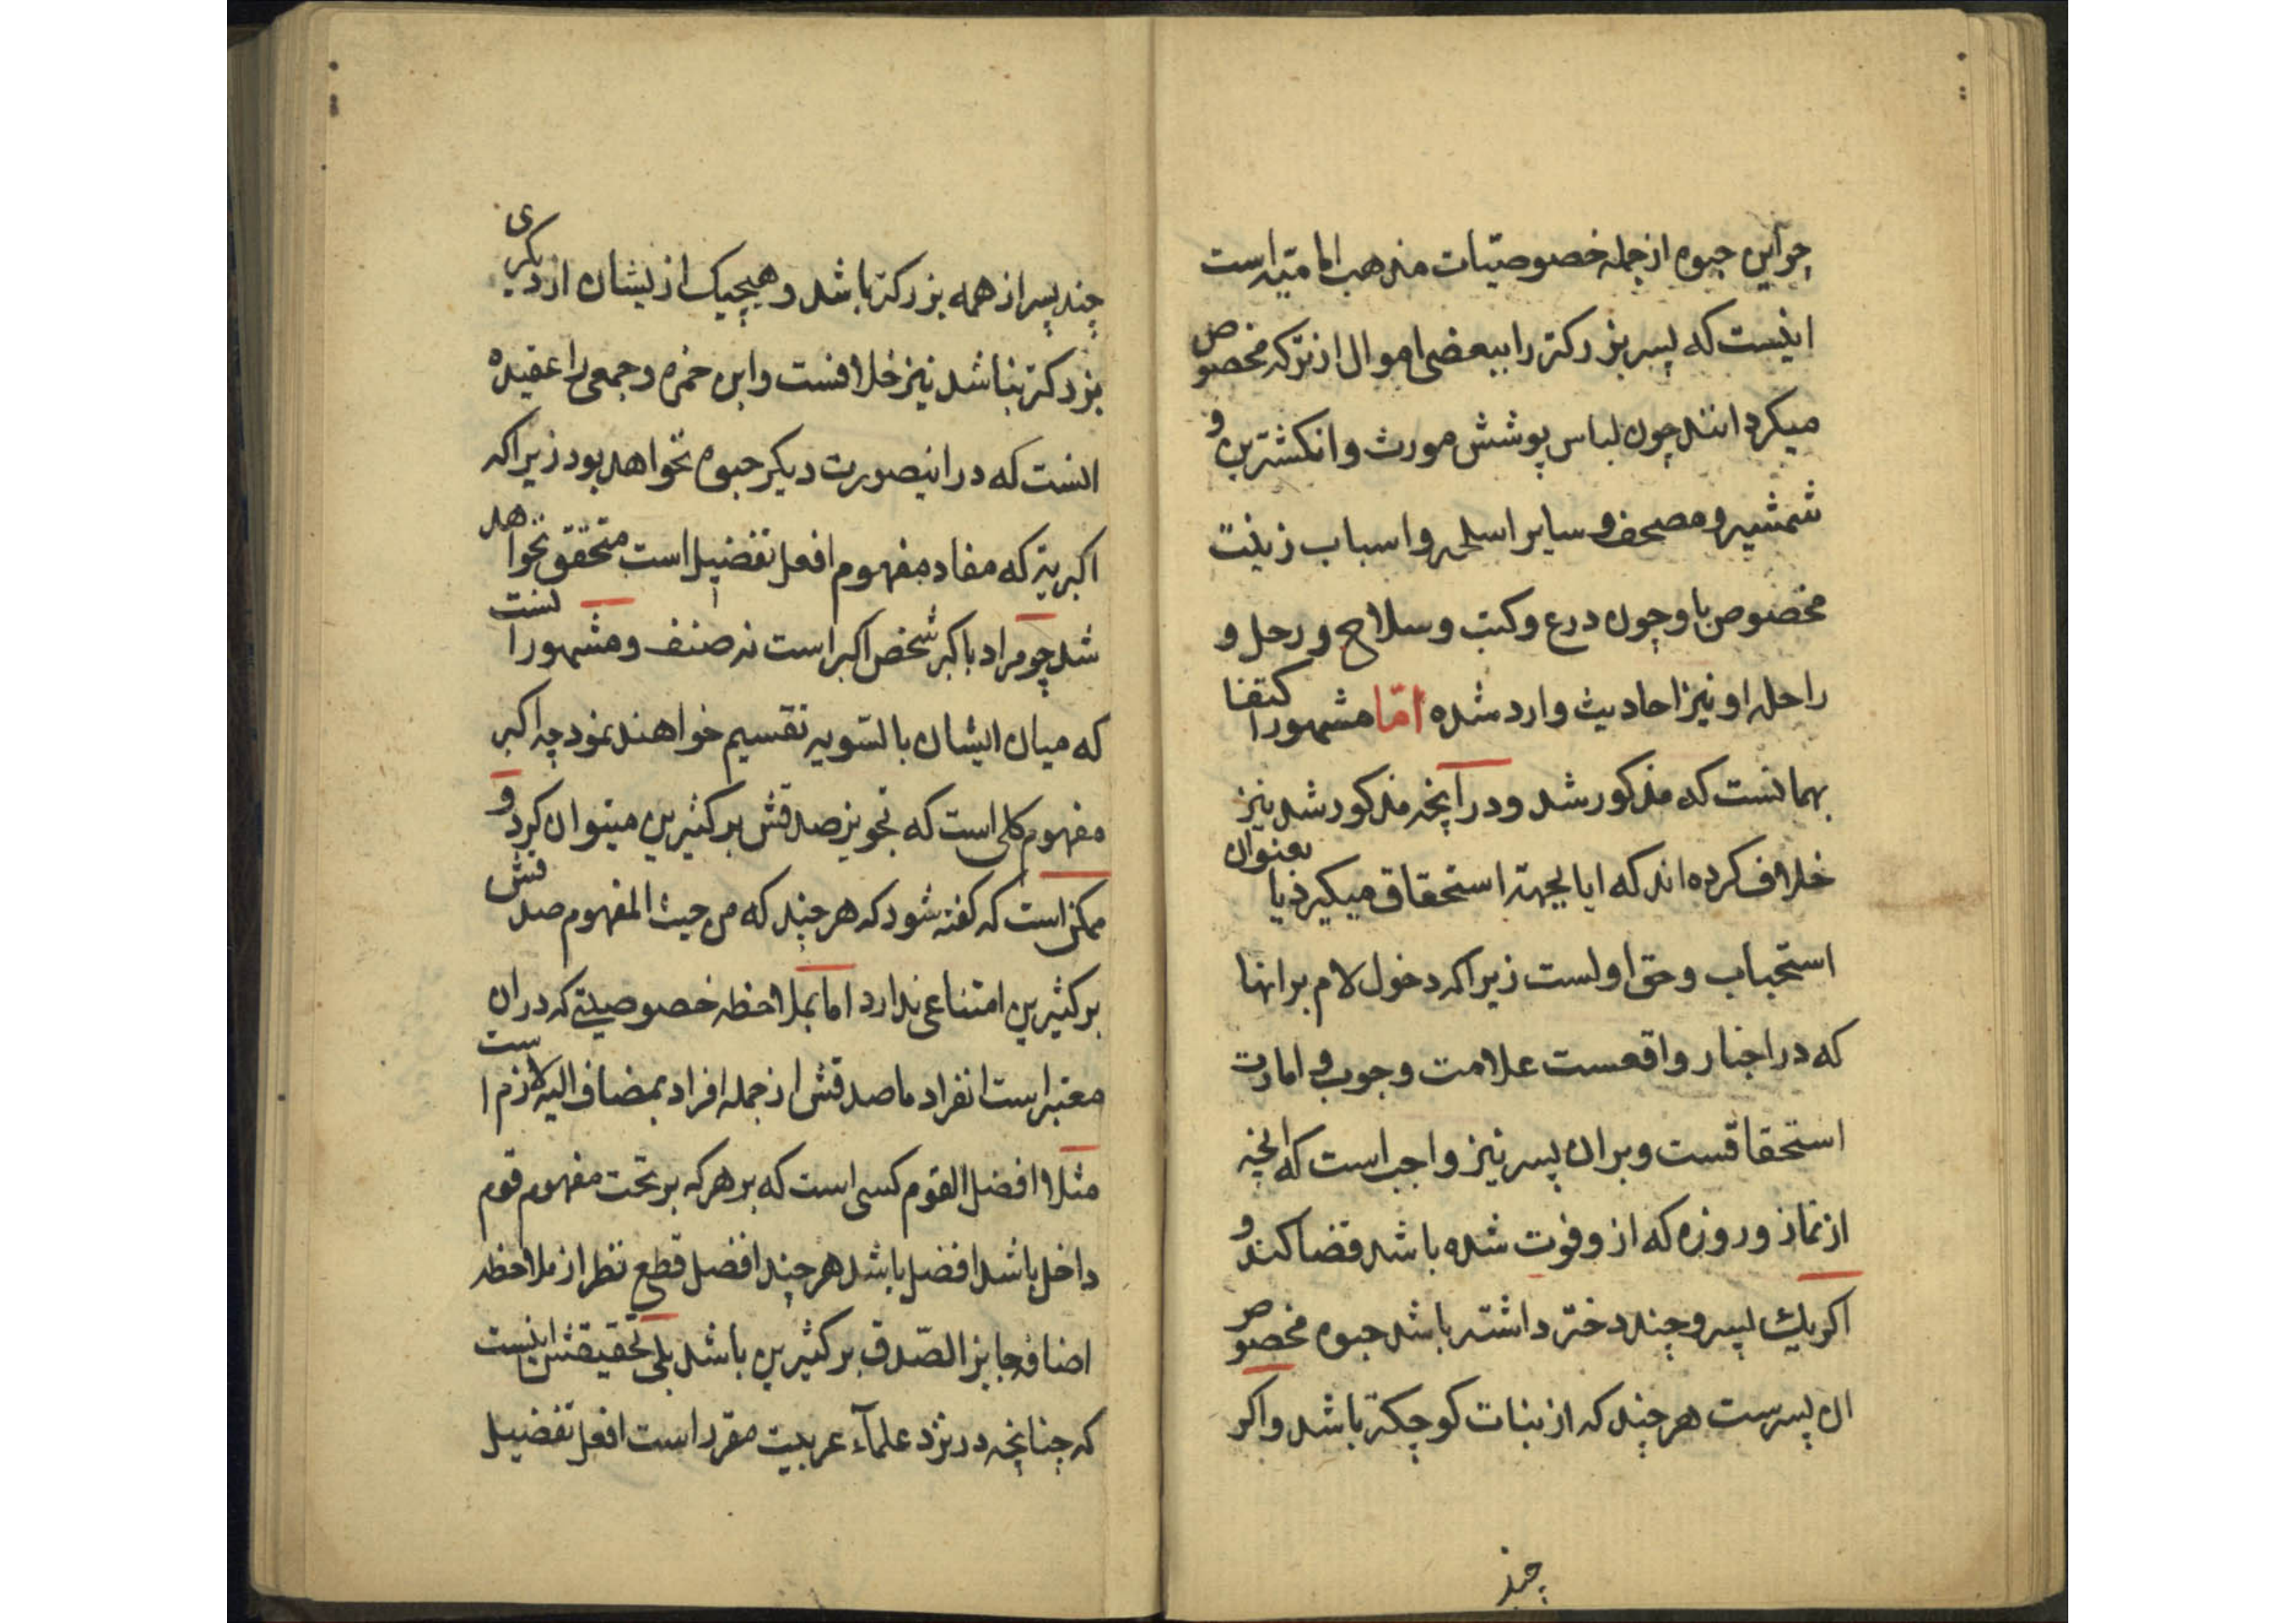 چو این حبوه از جمله خصوصیّات مذهب امامیّه است
اینست که پسر بزرکتر را ببعضی اموال از ترکه مخصوص
میکردانند چون لباس پوشش مورث و انکشترین و
شمشیر و مصحف و سایر اسلحه و اسباب زینت
مخصوص باو چون درع و کتب و سلاح و رحل و
راحله او نیز احادیث وارد شده امّا مشهور اکتفا
بهمانست که مذکور شد و در آنچه مذکور شد نیز
خلاف کرده‌اند که ایا بجهة استحقاق میکیرد یا بعنوان
استحباب و حق اولست زیرا که دخول لام بر انها
که در اخبار واقعست علامت وجوب و امارت
استحقاقست و بر ان پسر نیز واجب است که انچه
از نماز و روزه که از و فوت شده باشد قضا کند و
اکر یک پسر و چند دختر داشته باشد حبوه مخصوص
ان پسرست هر چند که از بنات کوچکتر باشد و اکر
چند
چند پسر از همه بزرکتر باشد و هیچیک ازیشان از دیکری
بزرکتر نباشد نیز خلافست و ابن حمزه و جمعی را عقیده
انست که در اینصورت دیکر حبوه نخواهد بود زیرا که
اکبریة که مفاد مفهوم افعل تفضیل است متحقق نخواهد
شد چو مراد باکبر شخص اکبر است نه صنف و مشهور انست
که میان ایشان بالتسویه تقسیم خواهند نمود چه اکبر
مفهوم کلی است که تجویز صدقش بر کثیرین میتوان کرد و
ممکن است که کفته شود که هر چند که من حیث المفهوم صدقش
بر کثیرین امتناعی ندارد اما بملاحظه خصوصیتی که در ان
معتبر است انفراد ماصدقش از جمله افراد بمضاف الیه لازم است
مثلا افضل القوم کسی است که بر هر که بر تحت مفهوم قوم
داخل باشد افضل باشد هر چند افضل قطع نظر از ملاحظه
اضافه جایز الصّدق بر کثیرین باشد بلی تحقیقش اینست
که چنانچه در نزد علمآء عربیت مقرر است افعل تفضیل